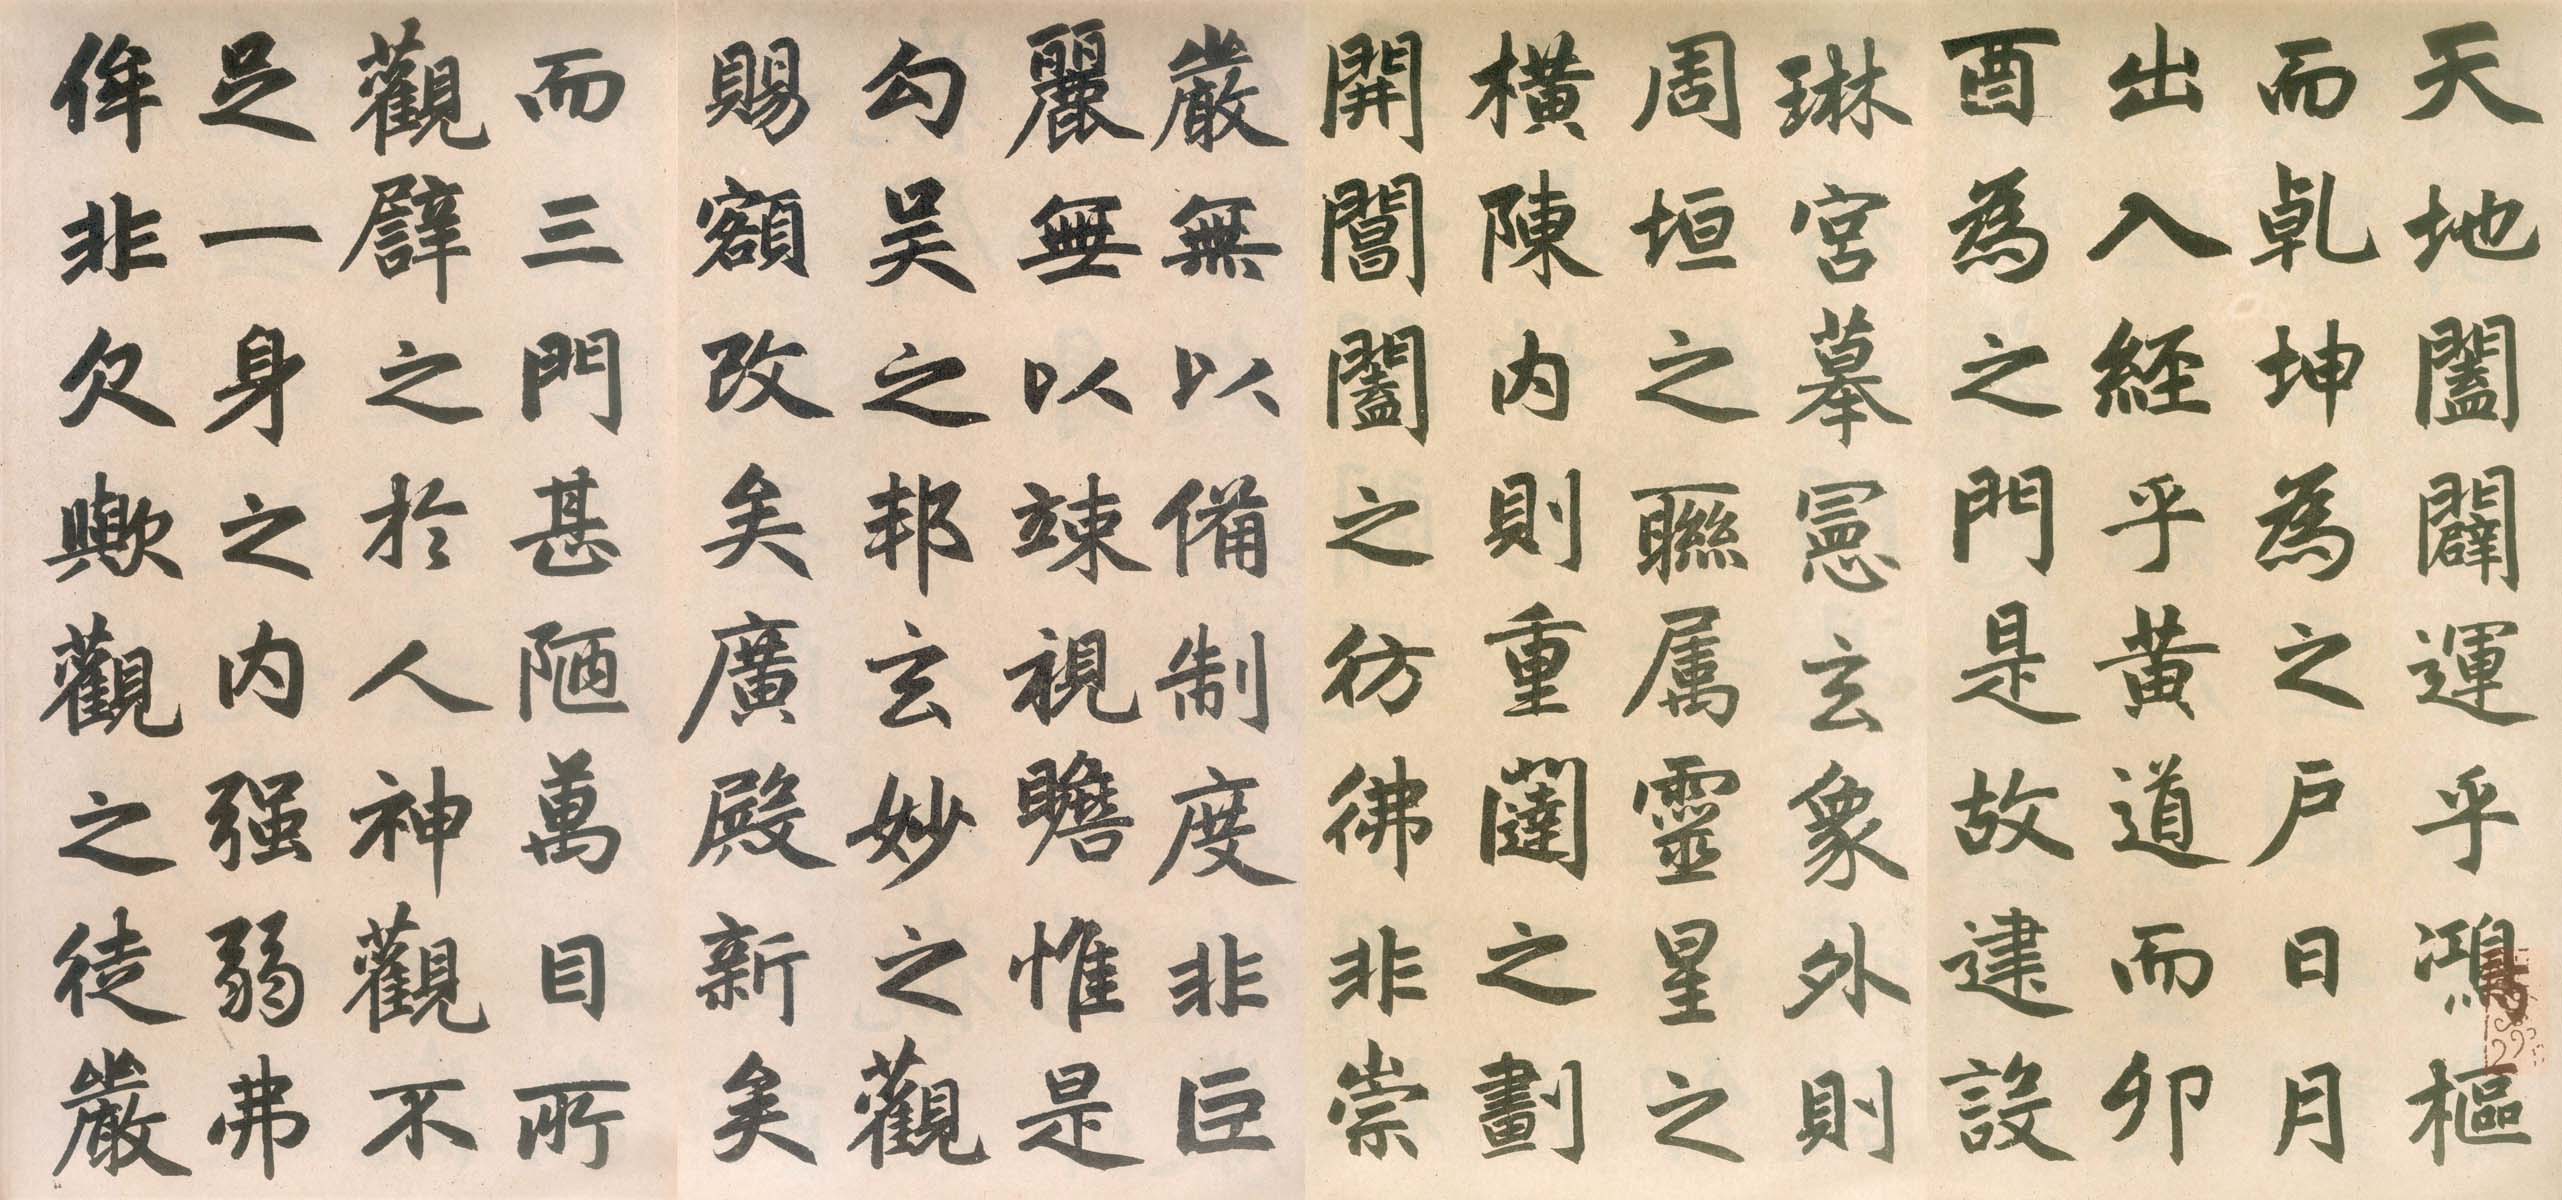 天地闔闢運乎鴻樞
而乹坤為之户日月
出入經乎黄道而夘
酉為之門是故建設
琳宮摹憲玄象外則
周垣之聯属靈星之
橫陳内則重闥之劃
開闾闔之彷彿非崇
嚴無以備制度非巨
麗無以竦視瞻惟是
勾吴之邦玄妙之觀
賜額改矣廣殿新矣
而三門甚陋萬目所
觀譬之於人神觀不
足一身之内强弱弗
侔非欠歟觀之徒嚴